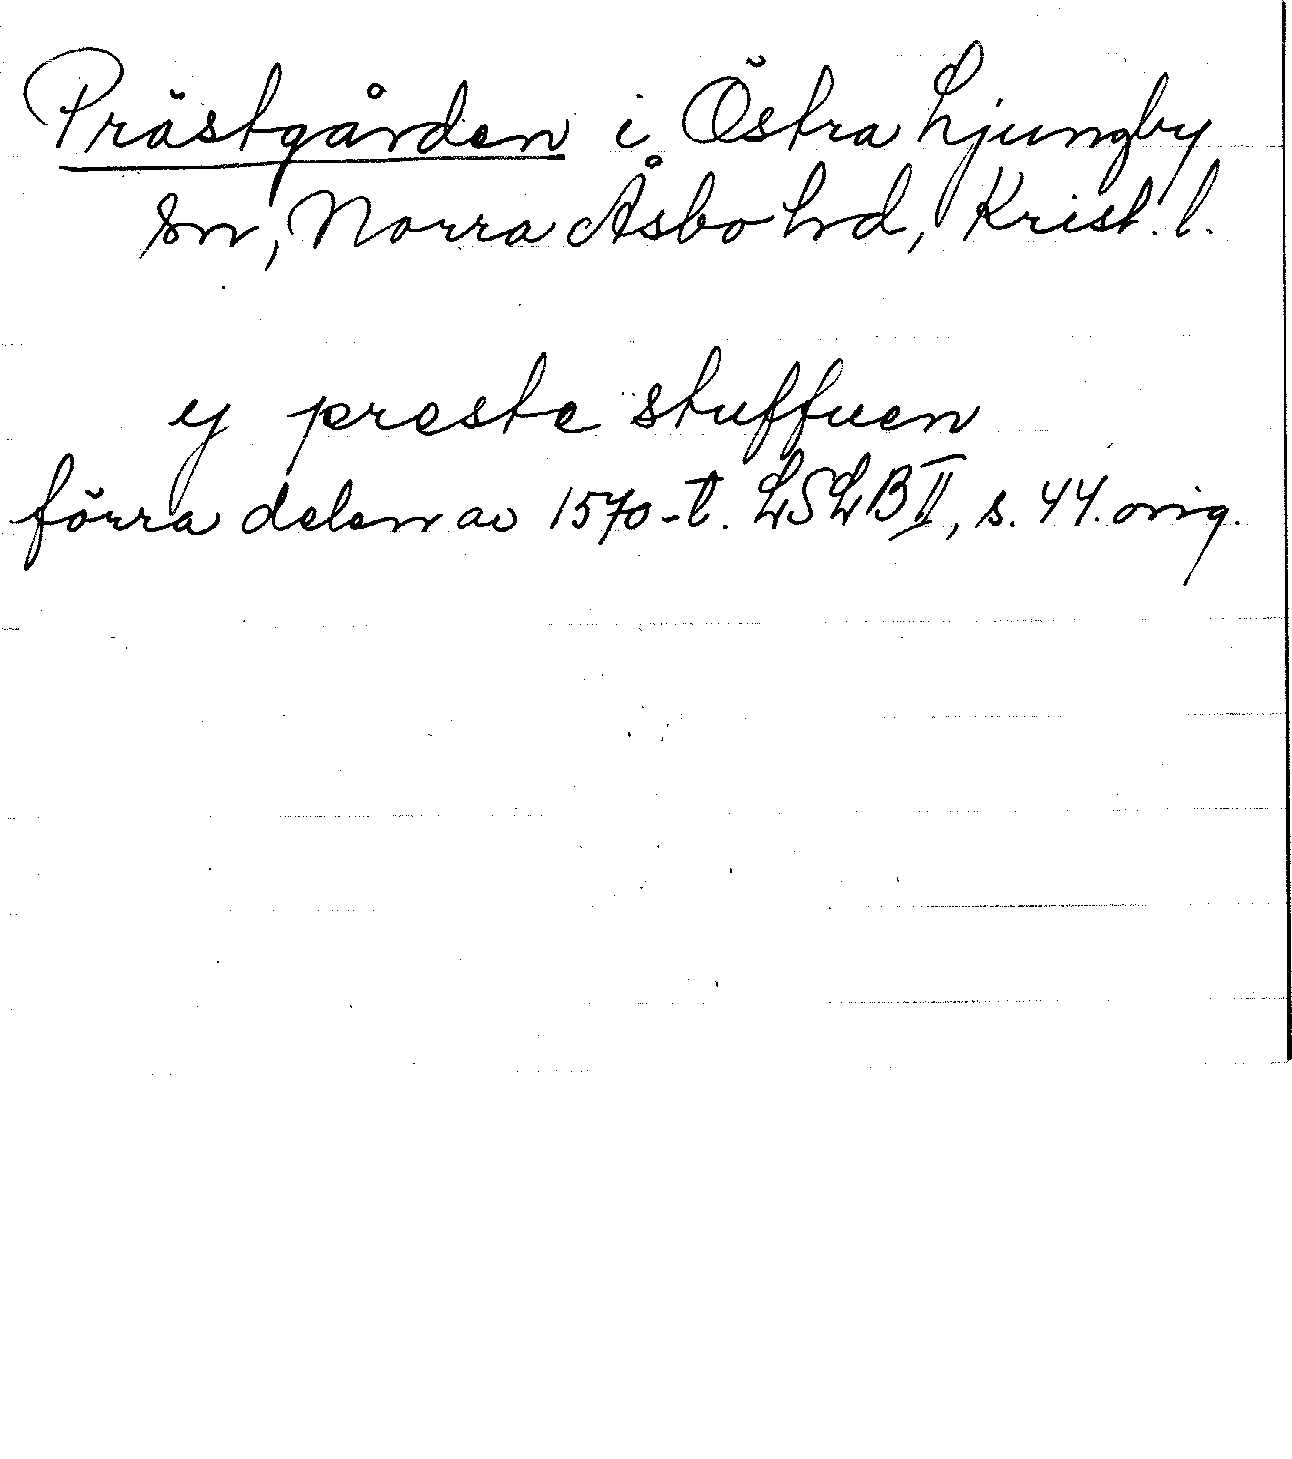 Prästgården i Östra Ljungby
sn, Norra Åsbo hd, Krist. l.
y preste stuffuen
förra delen av 1570-t. LSLB II, s. 44. orig.